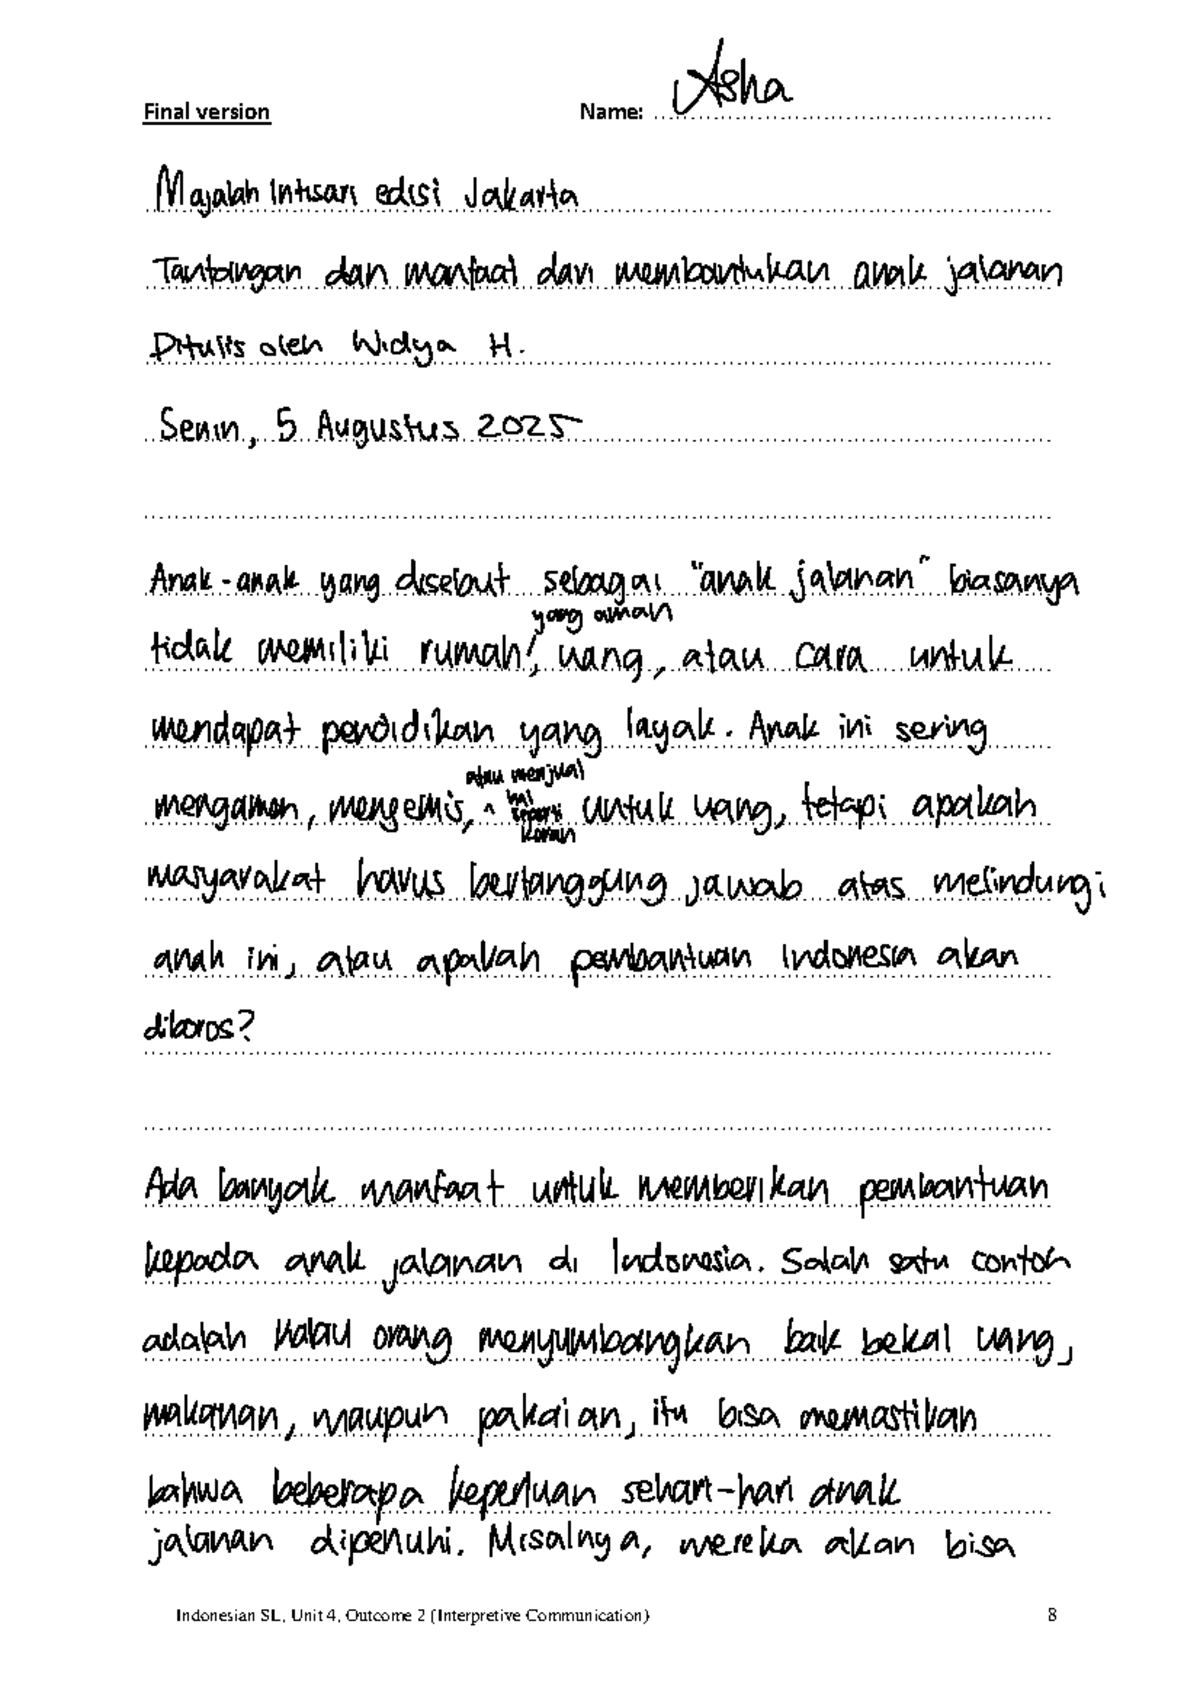 Final version Name: Asha
Majalah Intisari edisi Jakarta
Tantangan dan manfaat dari membantukan anak jalanan
Ditulis oleh Widya H.
Senin, 5 Augustus 2025
Anak-anak yang disebut sebagai "anak jalanan" biasanya
yang aman
tidak memiliki rumah, uang, atau cara untuk
mendapat pendidikan yang layak. Anak ini sering
atau menjual
mengamen, mengemis, ^ hal seperti koran untuk uang, tetapi apakah
masyarakat harus bertanggung jawab atas melindungi
anak ini, atau apakah pembantuan Indonesia akan
diboros?
Ada banyak manfaat untuk memberikan pembantuan
kepada anak jalanan di Indonesia. Salah satu contoh
adalah kalau orang menyumbangkan baik bekal uang,
makanan, maupun pakaian, itu bisa memastikan
bahwa beberapa keperluan sehari-hari anak
jalanan dipenuhi. Misalnya, mereka akan bisa
Indonesian SL, Unit 4, Outcome 2 (Interpretive Communication) 8